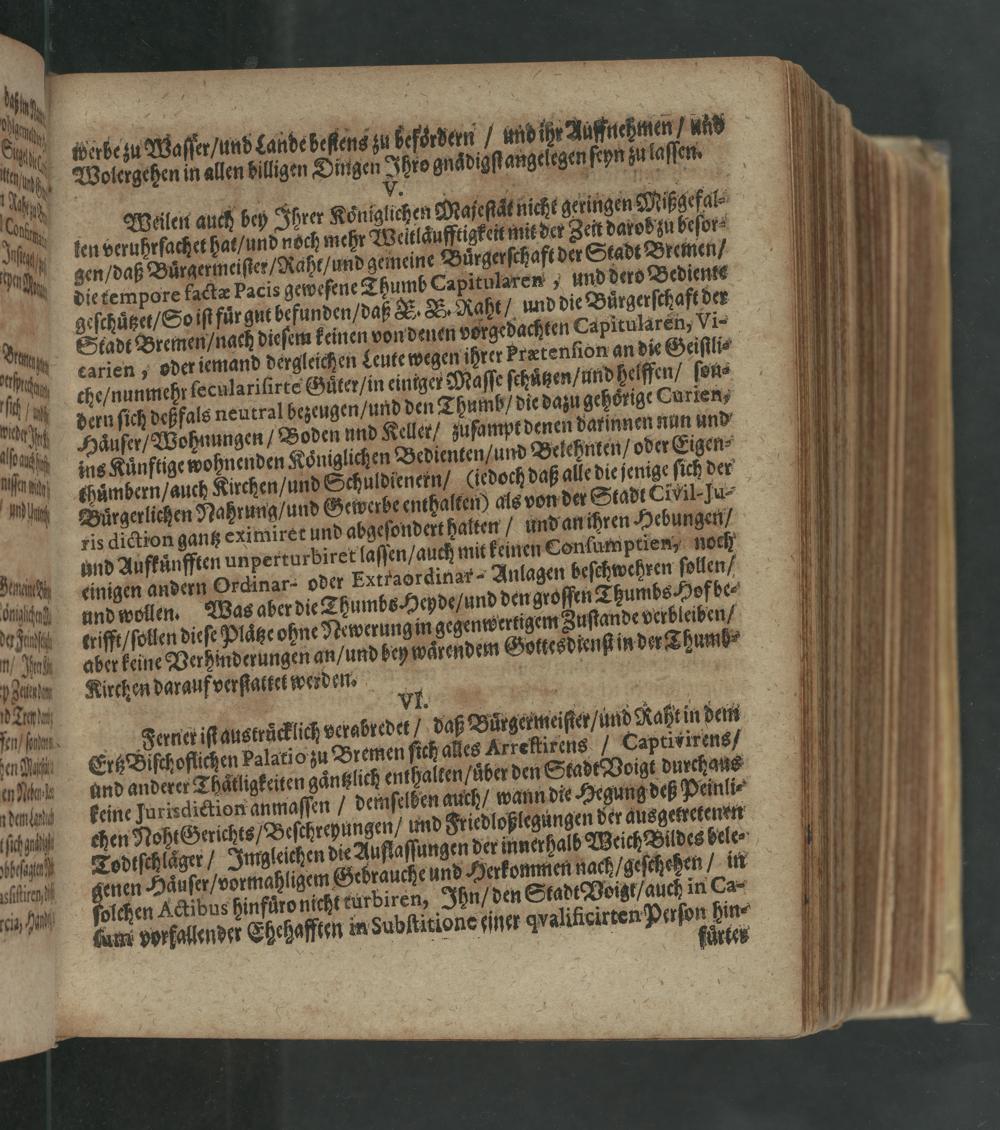 werbe zu Wasser/und Lande bestens zu befördern / und ihr Auffnehmen / und
Wolergehen in allen billigen Dingen Ihro gnädigst angelegen seyn zu lassen.
V.
Weilen auch bey Ihrer Königlichen Majestät nicht geringen Mißgefal-
len veruhrsachet hat/und noch mehr Weitläufftigkeit mit der Zeit darob zu besor-
gen/daß Bürgermeister/Raht/und gemeine Bürgerschaft der Stadt Bremen/
die tempore factæ Pacis gewesene Thumb Capitularen , und dero Bediente
geschützet/So ist für gut befunden/daß E. E. Raht/ und die Bürgerschaft der
Stadt Bremen/nach diesem keinen von denen vorgedachten Capitularen, Vi-
carien , oder iemand dergleichen Leute wegen ihrer Prætension an die Geistli-
che/nunmehr secularisirte Güter/in einiger Masse schützen/und helffen/ son-
dern sich deßfals neutral bezeugen/und den Thumb/die dazu gehörige Curien,
Häuser/Wohnungen/Boden und Keller/ zusampt denen darinnen nun und
ins Künftige wohnenden Königlichen Bedienten/und Belehnten/oder Eigen-
thümbern/auch Kirchen/und Schuldienern/ (iedoch daß alle die jenige sich der
Bürgerlichen Nahrung/und Gewerbe enthalten) als von der Stadt Civil-Ju-
ris diction gantz eximiret und abgesondert halten / und an ihren Hebungen/
und Aufkünfften unperturbiret lassen/auch mit keinen Consumptien, noch
einigen andern Ordinar- oder Extraordinar- Anlagen beschwehren sollen/
und wollen. Was aber die Thumbs-Heyde/und den grossen Thumbs-Hof be-
trifft/sollen diese Plätze ohne Newerung in gegenwertigem Zustande verbleiben/
aber keine Verhinderungen an/und bey wärendem Gottesdienst in der Thumb-
Kirchen darauf verstattet werden.
VI.
Ferner ist austrücklich verabredet / daß Bürgermeister/und Raht in dem
ErtzBischoflichen Palatio zu Bremen sich alles Arrestirens / Captivirens/
und anderer Thätligkeiten gäntzlich enthalten/über den StadtVoigt durchaus
keine Jurisdiction anmassen / demselben auch/ wann die Hegung deß Peinli-
chen NohtGerichts/Beschreyungen/ und Friedloßlegungen der ausgetretenen
Todtschläger / Imgleichen die Auflassungen der innerhalb WeichBildes bele-
genen Häuser/vormahligem Gebrauche und Herkommen nach/geschehen/ in
solchen Actibus hinfüro nicht turbiren, Ihn/den StadtVoigt/auch in Ca-
sum vorfallender Ehehafften in Substitione einer qvalificirten Person hin-
fürter